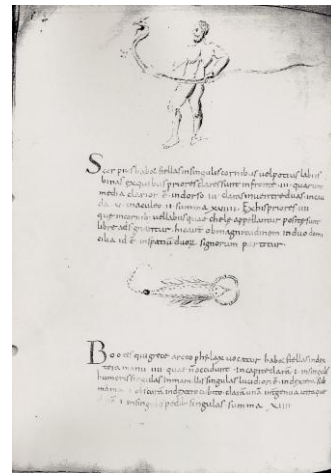 Scorpius habet stellas in singulis cornibus vel potius labiis
binas ex quibus priores clare sunt in fronte iii quarum
media clarior in dorso iii claras in ventre duas in cau
da v in aculeo ii summa xviiii Ex his priores iiii
que in cornib vel labiis quae chele appellantur posite sunt
libre adsignantur hic autem ob magnitudinem in duo domi
cilia id e in spatium duor signorum partitur
Bootes qui grece arctophelax vocatur habet stellas in dex
tera manu iiii que non occidunt in capite clara i in singulis
humeris singulas in mamillis singulas
in singulis pedib singulas summa XIIII